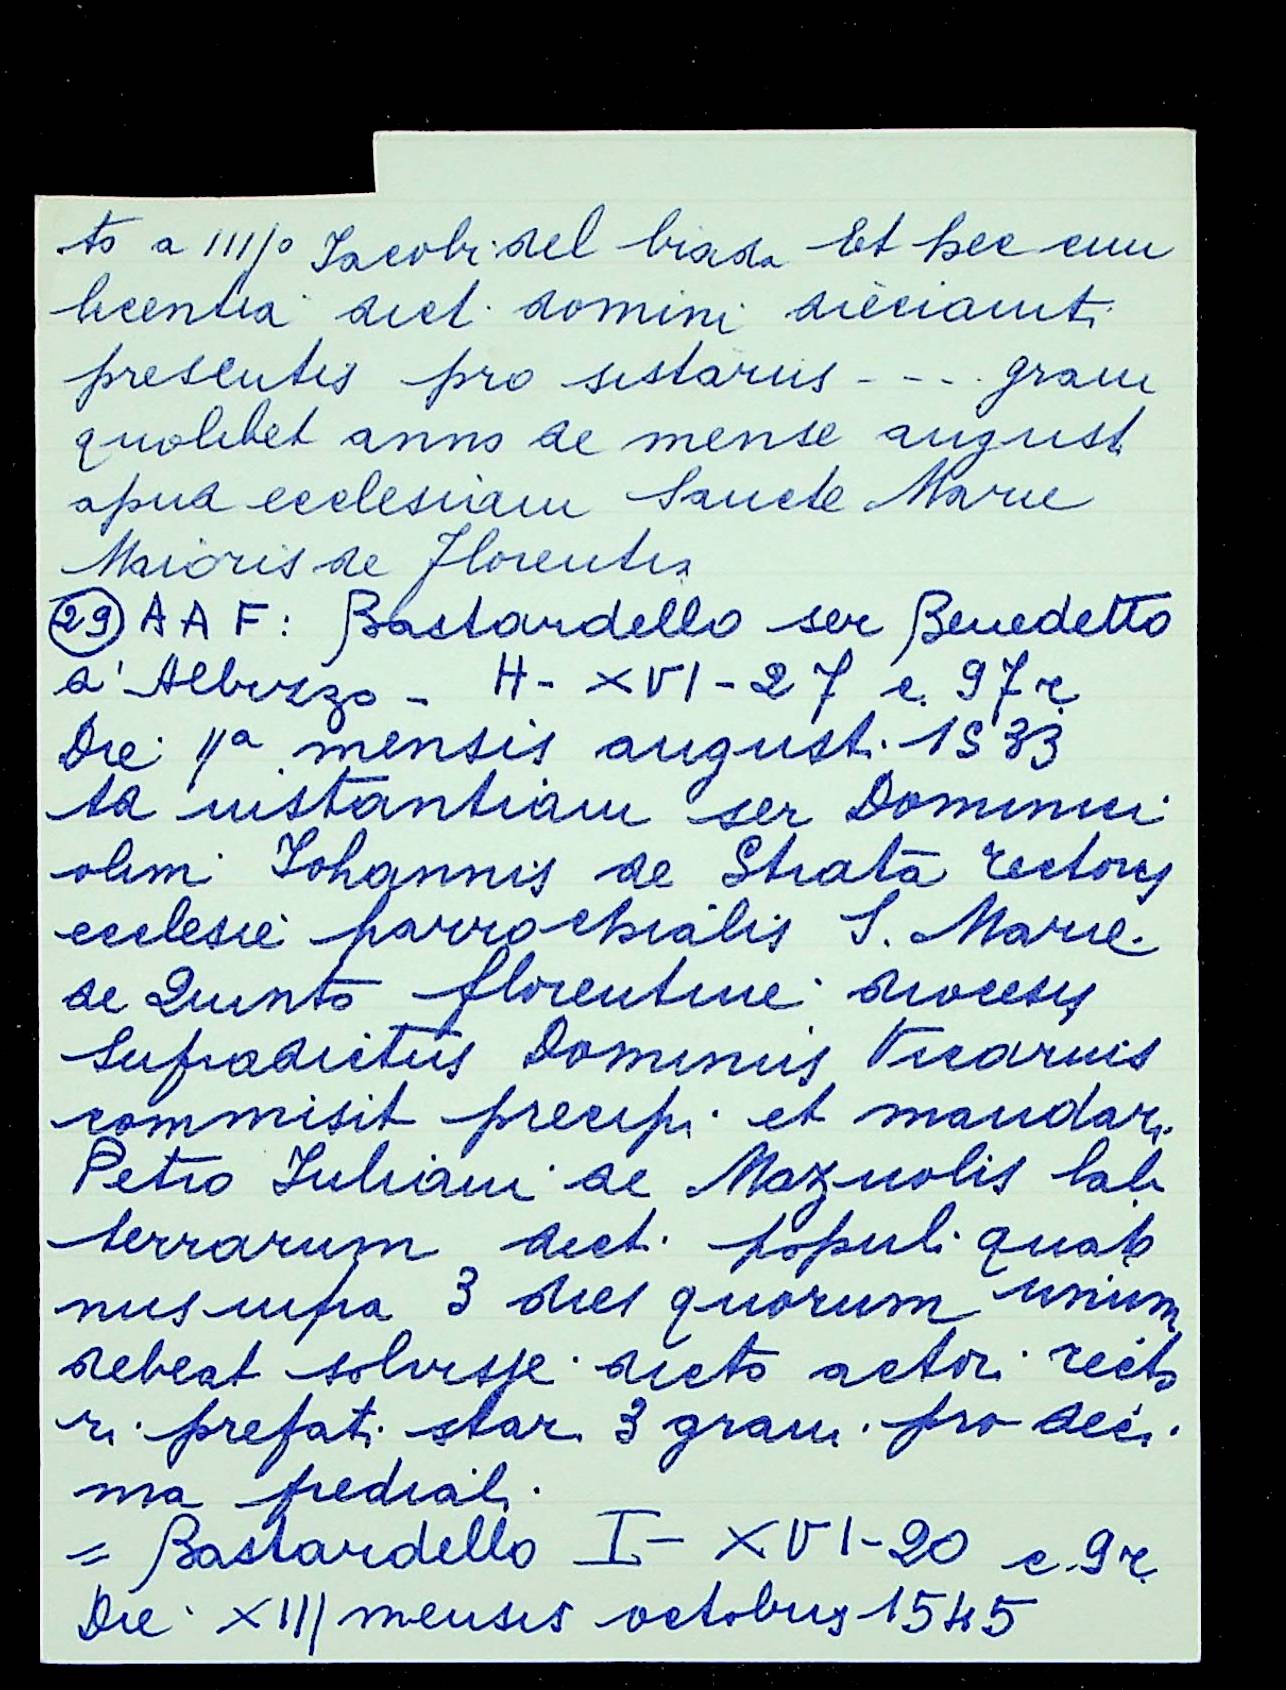 to a IIIIo Jacobi del biada Et hec cum
licentia dict. domini dieciamti
presentis pro sistariis - - - . grani
quolibet anno de mense augusti
apud ecclesiam Sancte Marie
Maioris de Florentia
(29) A A F: Bastardello ser Benedetto
d'Albizzo - H - XVI - 27 c. 97 r.
Die IIa mensis augusti 1533
ad instantiam ser Dominici
olim Iohannis de Strata rectoris
ecclesie parrochialis S. Marie
de Quinto florentine diocesis
Supradictus Dominus Vicarius
commisit precipi et mandari
Petro Iuliani de Maznolis lab.
terrarum dicti populi quate
nus infra 3 dies quorum unum
debeat solvisse dicto actori recto
ri prefati star. 3 grani pro deci
ma predial.
= Bastardello I - XVI - 20 c. 9 r.
Die XIII mensis octobris 1545